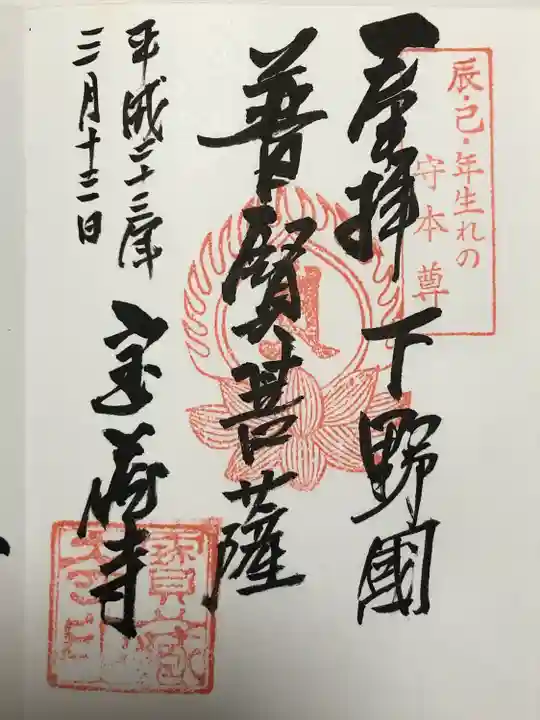 辰・巳・年生れの
守本尊
奉拝 下野國
普賢菩薩
宝蔵寺
平成二十三年
三月十三日
寳蔵